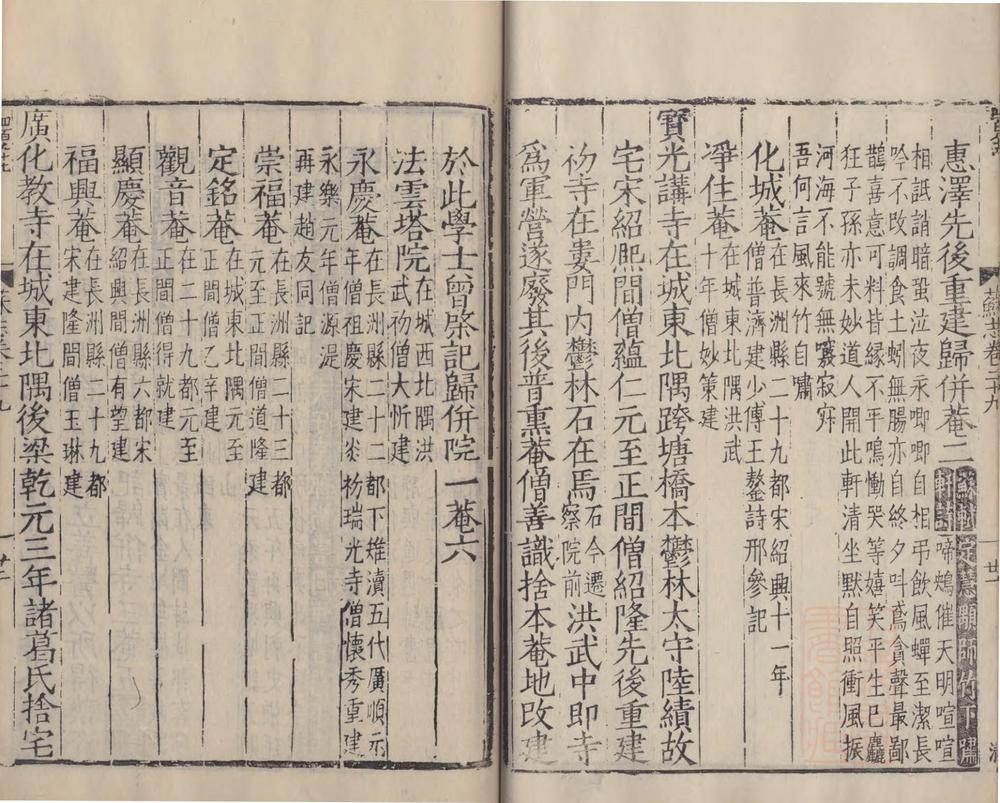 惠澤先後重建歸併菴二
蘇軾定惠顒師竹下嘯軒詩
啼鴂催天明喧喧
相詆誚暗蛩泣夜永唧唧自相弔飲風蟬至潔長
吟不改調食土蚓無腸亦自終夕叫鳶貪聲最鄙
鵲喜意可料皆緣不平鳴慟哭等嬉笑平生已麤
狂子孫亦未妙道人開此軒清坐默自照衝風振
河海不能號無竅寂㝔
吾何言風來竹自嘯
化城菴在長洲縣二十九都宋紹興十一年
僧普濟建少傅王鏊詩邢參記
凈住菴在城東北隅洪武
十年僧妙策建
寶光講寺在城東北隅跨塘橋本鬱林太守陸績故
宅宋紹熈間僧蘊仁元至正間僧紹隆先後重建
初寺在婁門內鬱林石在焉石今遷察院前洪武中即寺
爲軍營遂廢其後普熏菴僧善識捨本菴地改建
於此學士曾棨記歸併院一菴六
法雲塔院在城西北隅洪
武初僧大忻建
永慶菴在長洲縣二十二都下雉瀆五代廣順元
年僧祖慶宋建炎初瑞光寺僧懷秀重建
永樂元年僧源湜
再建趙友同記
崇福菴在長洲縣二十三都
元至正間僧道隆建
定銘菴在城東北隅元至
正間僧乙辛建
觀音菴在二十九都元至
正間僧得就建
顯慶菴在長洲縣六都宋
紹興間僧有望建
福興菴在長洲縣二十九都
宋建隆間僧玉琳建
廣化教寺在城東北隅後梁乾元三年諸葛氏捨宅
蘇志卷二十九
廿一
廿二